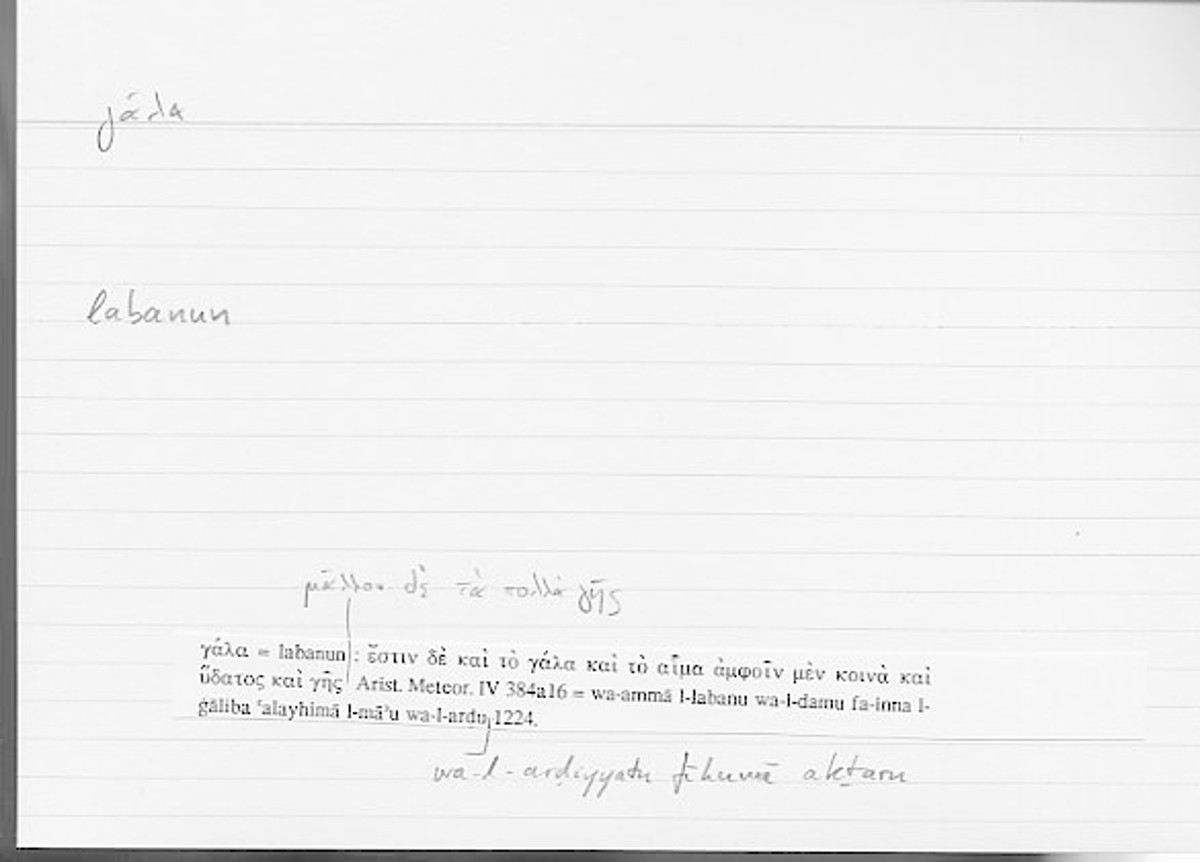 γάλα
labanun
μᾶλλον δὲ τὰ πολλὰ γῆς
γάλα = labanun : ἔστιν δὲ καὶ τὸ γάλα καὶ τὸ αἷμα ἀμφοῖν μὲν κοινὰ καὶ
ὕδατος καὶ γῆς Arist. Meteor. IV 384a16 = wa-ammā l-labanu wa-l-damu fa-inna l-
ġāliba ʿalayhimā l-māʾu wa-l-arḍu 1224.
wa-l-arḍiyyatu fīhumā akṯaru